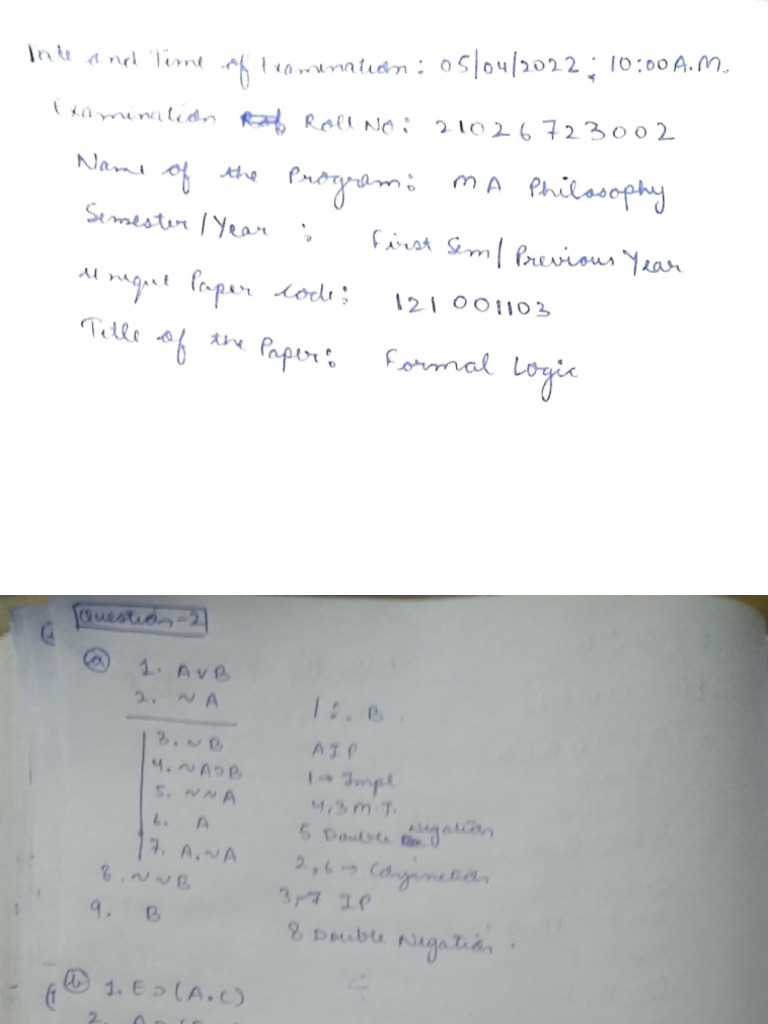 Date and Time of Examination : 05/04/2022 ; 10:00 A.M.
Examination Roll No : 21026723002
Name of the Program : MA Philosophy
Semester / Year : First Sem / Previous Year
Unique Paper Code : 121001103
Title of the Paper : Formal Logic
Question-2
(a) 1. A v B
2. ~ A / ∴ B.
3. ~ B AIP
4. ~A ⊃ B 1 → Impl.
5. ~ ~ A 4,3 M.T.
6. A 5 Double Negation
7. A . ~ A 2, 6 → Conjunction
8. ~ ~ B 3,-7 IP
9. B 8 Double Negation .
(b) 1. E ⊃ (A . C)